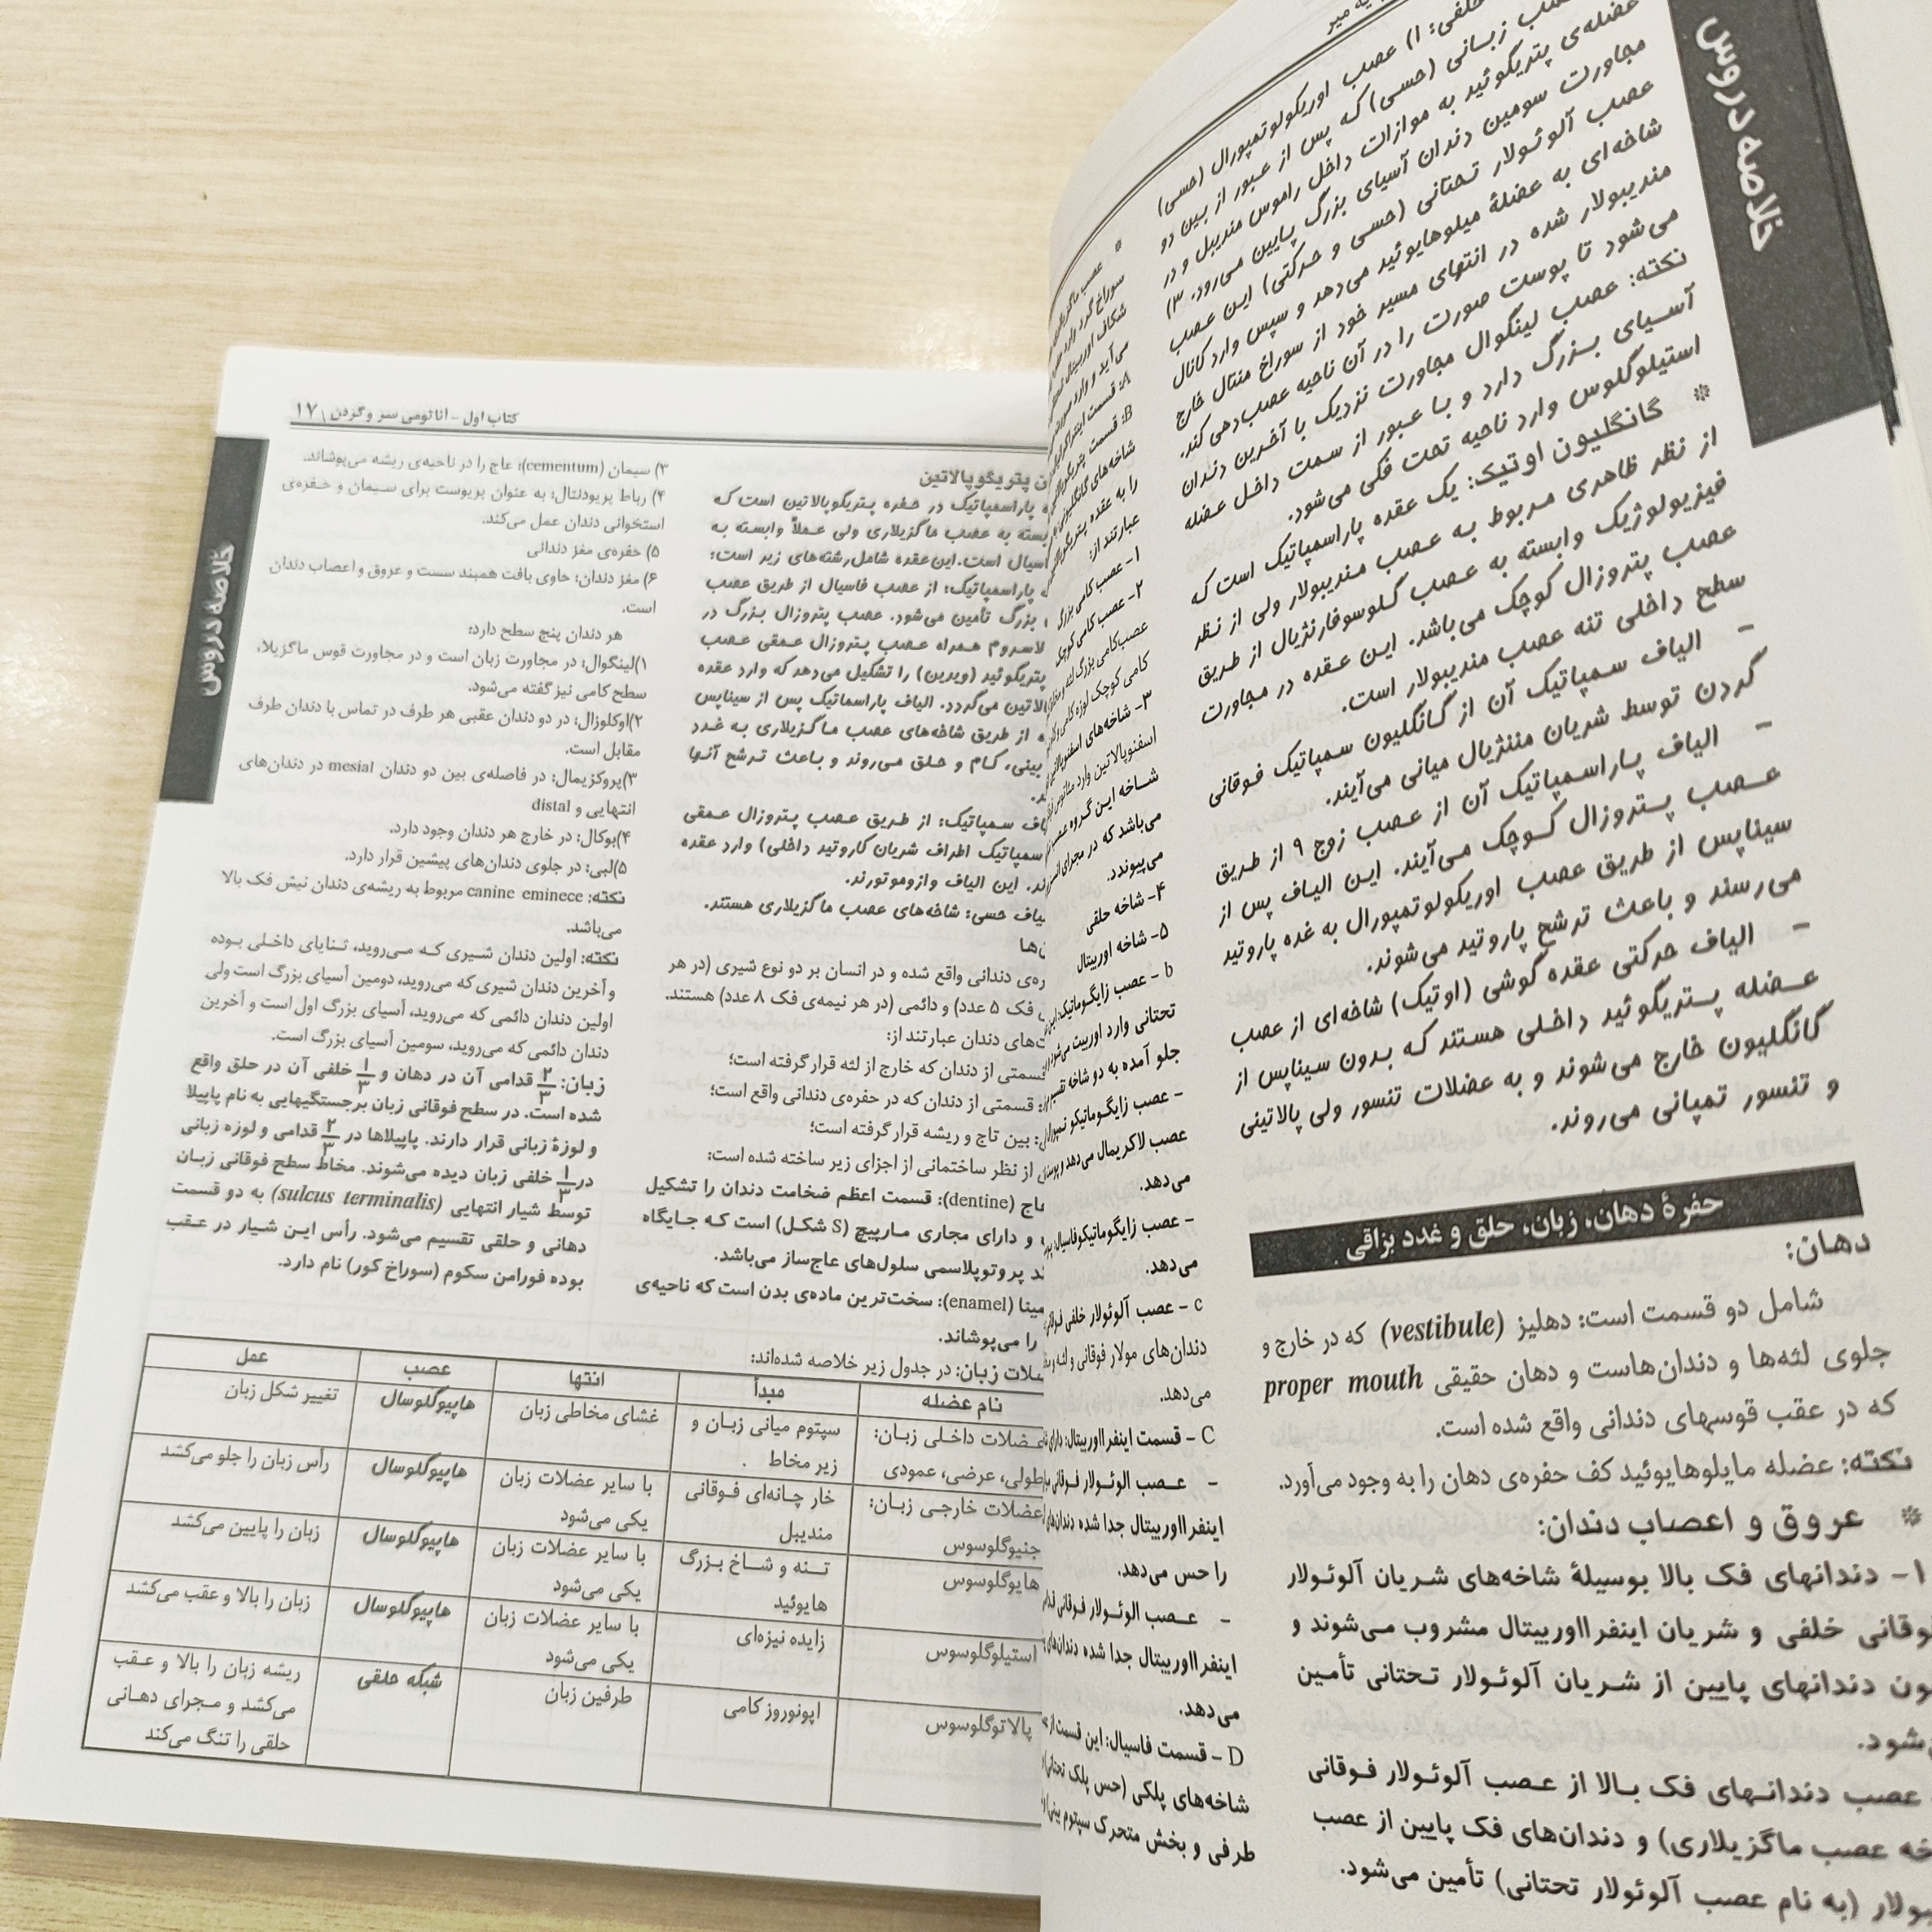 خلاصه دروس
خلفی: ۱) عصب اوریکولوتمپورال (حسی)
زبانی (حسی) که پس از عبور از بین دو
عضله‌ی پتریگوئید به موازات داخل راموس مندیبل و در
مجاورت سومین دندان آسیای بزرگ پایین می‌رود. ۳)
عصب آلوئولار تحتانی (حسی و حرکتی) این عصب
شاخه‌ای به عضلهٔ میلوهایوئید می‌دهد و سپس وارد کانال
مندیبولار شده در انتهای مسیر خود از سوراخ منتال خارج
می‌شود تا پوست صورت را در آن ناحیه عصب‌دهی کند.
نکته: عصب لینگوال مجاورت نزدیک با آخرین دندان
آسیای بزرگ دارد و با عبور از سمت داخل عضله
استیلوگلوس وارد ناحیه تحت فکی می‌شود.
* گانگلیون اوتیک: یک عقده پاراسمپاتیک است که
از نظر ظاهری مربوط به عصب مندیبولار ولی از نظر
فیزیولوژیک وابسته به عصب گلوسوفارنژیال از طریق
عصب پتروزال کوچک می‌باشد. این عقده در مجاورت
سطح داخلی تنه عصب مندیبولار است.
- الیاف سمپاتیک آن از گانگلیون سمپاتیک فوقانی
گردن توسط شریان مننژیال میانی می‌آیند.
- الیاف پاراسمپاتیک آن از عصب زوج ۹ از طریق
عصب پتروزال کوچک می‌آیند. این الیاف پس از
سیناپس از طریق عصب اوریکولوتمپورال به غده پاروتید
می‌رسند و باعث ترشح پاروتید می‌شوند.
- الیاف حرکتی عقده گوشی (اوتیک) شاخه‌ای از عصب
عضله پتریگوئید داخلی هستند که بدون سیناپس از
گانگلیون خارج می‌شوند و به عضلات تنسور ولی پالاتینی
و تنسور تمپانی می‌روند.
حفرهٔ دهان، زبان، حلق و غدد بزاقی
دهان:
شامل دو قسمت است: دهلیز (vestibule) که در خارج و
جلوی لثه‌ها و دندان‌هاست و دهان حقیقی proper mouth
که در عقب قوسهای دندانی واقع شده است.
نکته: عضله مایلوهایوئید کف حفره‌ی دهان را به وجود می‌آورد.
* عروق و اعصاب دندان:
۱- دندانهای فک بالا بوسیلهٔ شاخه‌های شریان آلوئولار
خلفی و شریان اینفرااوربیتال مشروب می‌شوند و
دندانهای پایین از شریان آلوئولار تحتانی تأمین
عصب دندانهای فک بالا از عصب آلوئولار فوقانی
عصب ماگزیلاری) و دندان‌های فک پایین از عصب
(به نام عصب آلوئولار تحتانی) تأمین می‌شود.
عبارتند از:
۱- عصب کامی بزرگ
۲- عصب کامی کوچک
عصب‌کامی بزرگ لثه و
کامی کوچک لوزه کامی
۳- شاخه‌های
شاخه این گروه عصب
می‌باشد که در مجرای
می‌پیوندد.
۴- شاخه حلقی
۵- شاخه اوربیتال
b - عصب زایگوماتیک:
تحتانی وارد اوربیت می‌شود
جلو آمده به دو شاخه تقسیم
- عصب زایگوماتیکو
عصب لاکریمال می‌دهد و
می‌دهد.
- عصب زایگوماتیکوفاسیال:
می‌دهد.
c - عصب آلوئولار خلفی
دندان‌های مولار فوقانی و لثه و
می‌دهد.
C - قسمت اینفرااوربیتال: دارای
- عصب الوئولار فوقانی
اینفرااوربیتال جدا شده دندان‌های
را حس می‌دهد.
- عصب الوئولار فوقانی
اینفرااوربیتال جدا شده دندان‌های
می‌دهد.
D - قسمت فاسیال: این قسمت از
شاخه‌های پلکی (حس پلک تحتانی)
طرفی و بخش متحرک سپتوم بینی)
کتاب اول – اناتومی سر و گردن \ ۱۷
پتریگوپالاتین
پاراسمپاتیک در حفره پتریگوپالاتین است که
به عصب ماگزیلاری ولی عملاً وابسته به
است. این عقده شامل رشته‌های زیر است:
پاراسمپاتیک: از عصب فاسیال از طریق عصب
بزرگ تأمین می‌شود. عصب پتروزال بزرگ در
همراه عصب پتروزال عمقی عصب
پتریگوئید (ویدین) را تشکیل می‌دهد که وارد عقده
می‌گردد. الیاف پاراسماتیک پس از سیناپس
از طریق شاخه‌های عصب ماگزیلاری به غدد
بینی، کام و حلق می‌روند و باعث ترشح آنها
سمپاتیک: از طریق عصب پتروزال عمقی
سمپاتیک اطراف شریان کاروتید داخلی) وارد عقده
این الیاف وازوموتورند.
حسی: شاخه‌های عصب ماگزیلاری هستند.
دندانی واقع شده و در انسان بر دو نوع شیری (در هر
فک ۵ عدد) و دائمی (در هر نیمه‌ی فک ۸ عدد) هستند.
دندان عبارتند از:
از دندان که خارج از لثه قرار گرفته است؛
قسمتی از دندان که در حفره‌ی دندانی واقع است؛
بین تاج و ریشه قرار گرفته است؛
از نظر ساختمانی از اجزای زیر ساخته شده است:
عاج (dentine): قسمت اعظم ضخامت دندان را تشکیل
و دارای مجاری مارپیچ (S شکل) است که جایگاه
پروتوپلاسمی سلول‌های عاج‌ساز می‌باشد.
مینا (enamel): سخت‌ترین ماده‌ی بدن است که ناحیه‌ی
را می‌پوشاند.
زبان: در جدول زیر خلاصه شده‌اند:
۳) سیمان (cementum): عاج را در ناحیه‌ی ریشه می‌پوشاند.
۴) رباط پریودنتال: به عنوان پریوست برای سیمان و حفره‌ی
استخوانی دندان عمل می‌کند.
۵) حفره‌ی مغز دندانی
۶) مغز دندان: حاوی بافت همبند سست و عروق و اعصاب دندان
است.
هر دندان پنج سطح دارد:
۱)لینگوال: در مجاورت زبان است و در مجاورت قوس ماگزیلا،
سطح کامی نیز گفته می‌شود.
۲)اوکلوزال: در دو دندان عقبی هر طرف در تماس با دندان طرف
مقابل است.
۳)پروکزیمال: در فاصله‌ی بین دو دندان mesial در دندان‌های
انتهایی و distal
۴)بوکال: در خارج هر دندان وجود دارد.
۵)لبی: در جلوی دندان‌های پیشین قرار دارد.
نکته: canine eminece مربوط به ریشه‌ی دندان نیش فک بالا
می‌باشد.
نکته: اولین دندان شیری که می‌روید، ثنایای داخلی بوده
و آخرین دندان شیری که می‌روید، دومین آسیای بزرگ است ولی
اولین دندان دائمی که می‌روید، آسیای بزرگ اول است و آخرین
دندان دائمی که می‌روید، سومین آسیای بزرگ است.
زبان: ۲/۳ قدامی آن در دهان و ۱/۳ خلفی آن در حلق واقع
شده است. در سطح فوقانی زبان برجستگیهایی به نام پاپیلا
و لوزهٔ زبانی قرار دارند. پاپیلاها در ۲/۳ قدامی و لوزه زبانی
در ۱/۳ خلفی زبان دیده می‌شوند. مخاط سطح فوقانی زبان
توسط شیار انتهایی (sulcus terminalis) به دو قسمت
دهانی و حلقی تقسیم می‌شود. رأس این شیار در عقب
بوده فورامن سکوم (سوراخ کور) نام دارد.
خلاصه دروس
نام عضله مبدأ انتها عصب عمل
عضلات داخلی زبان: سپتوم میانی زبان و غشای مخاطی زبان هایپوگلوسال تغییر شکل زبان
طولی، عرضی، عمودی زیر مخاط
عضلات خارجی زبان: خار چانه‌ای فوقانی با سایر عضلات زبان هایپوگلوسال رأس زبان را جلو می‌کشد
جنیوگلوسوس مندیبل یکی می‌شود
هایوگلوسوس تنه و شاخ بزرگ با سایر عضلات زبان هایپوگلوسال زبان را پایین می‌کشد
هایوئید یکی می‌شود
استیلوگلوسوس زایده نیزه‌ای با سایر عضلات زبان هایپوگلوسال زبان را بالا و عقب می‌کشد
یکی می‌شود
پالاتوگلوسوس اپونوروز کامی طرفین زبان شبکه حلقی ریشه زبان را بالا و عقب
می‌کشد و مجرای دهانی
حلقی را تنگ می‌کند